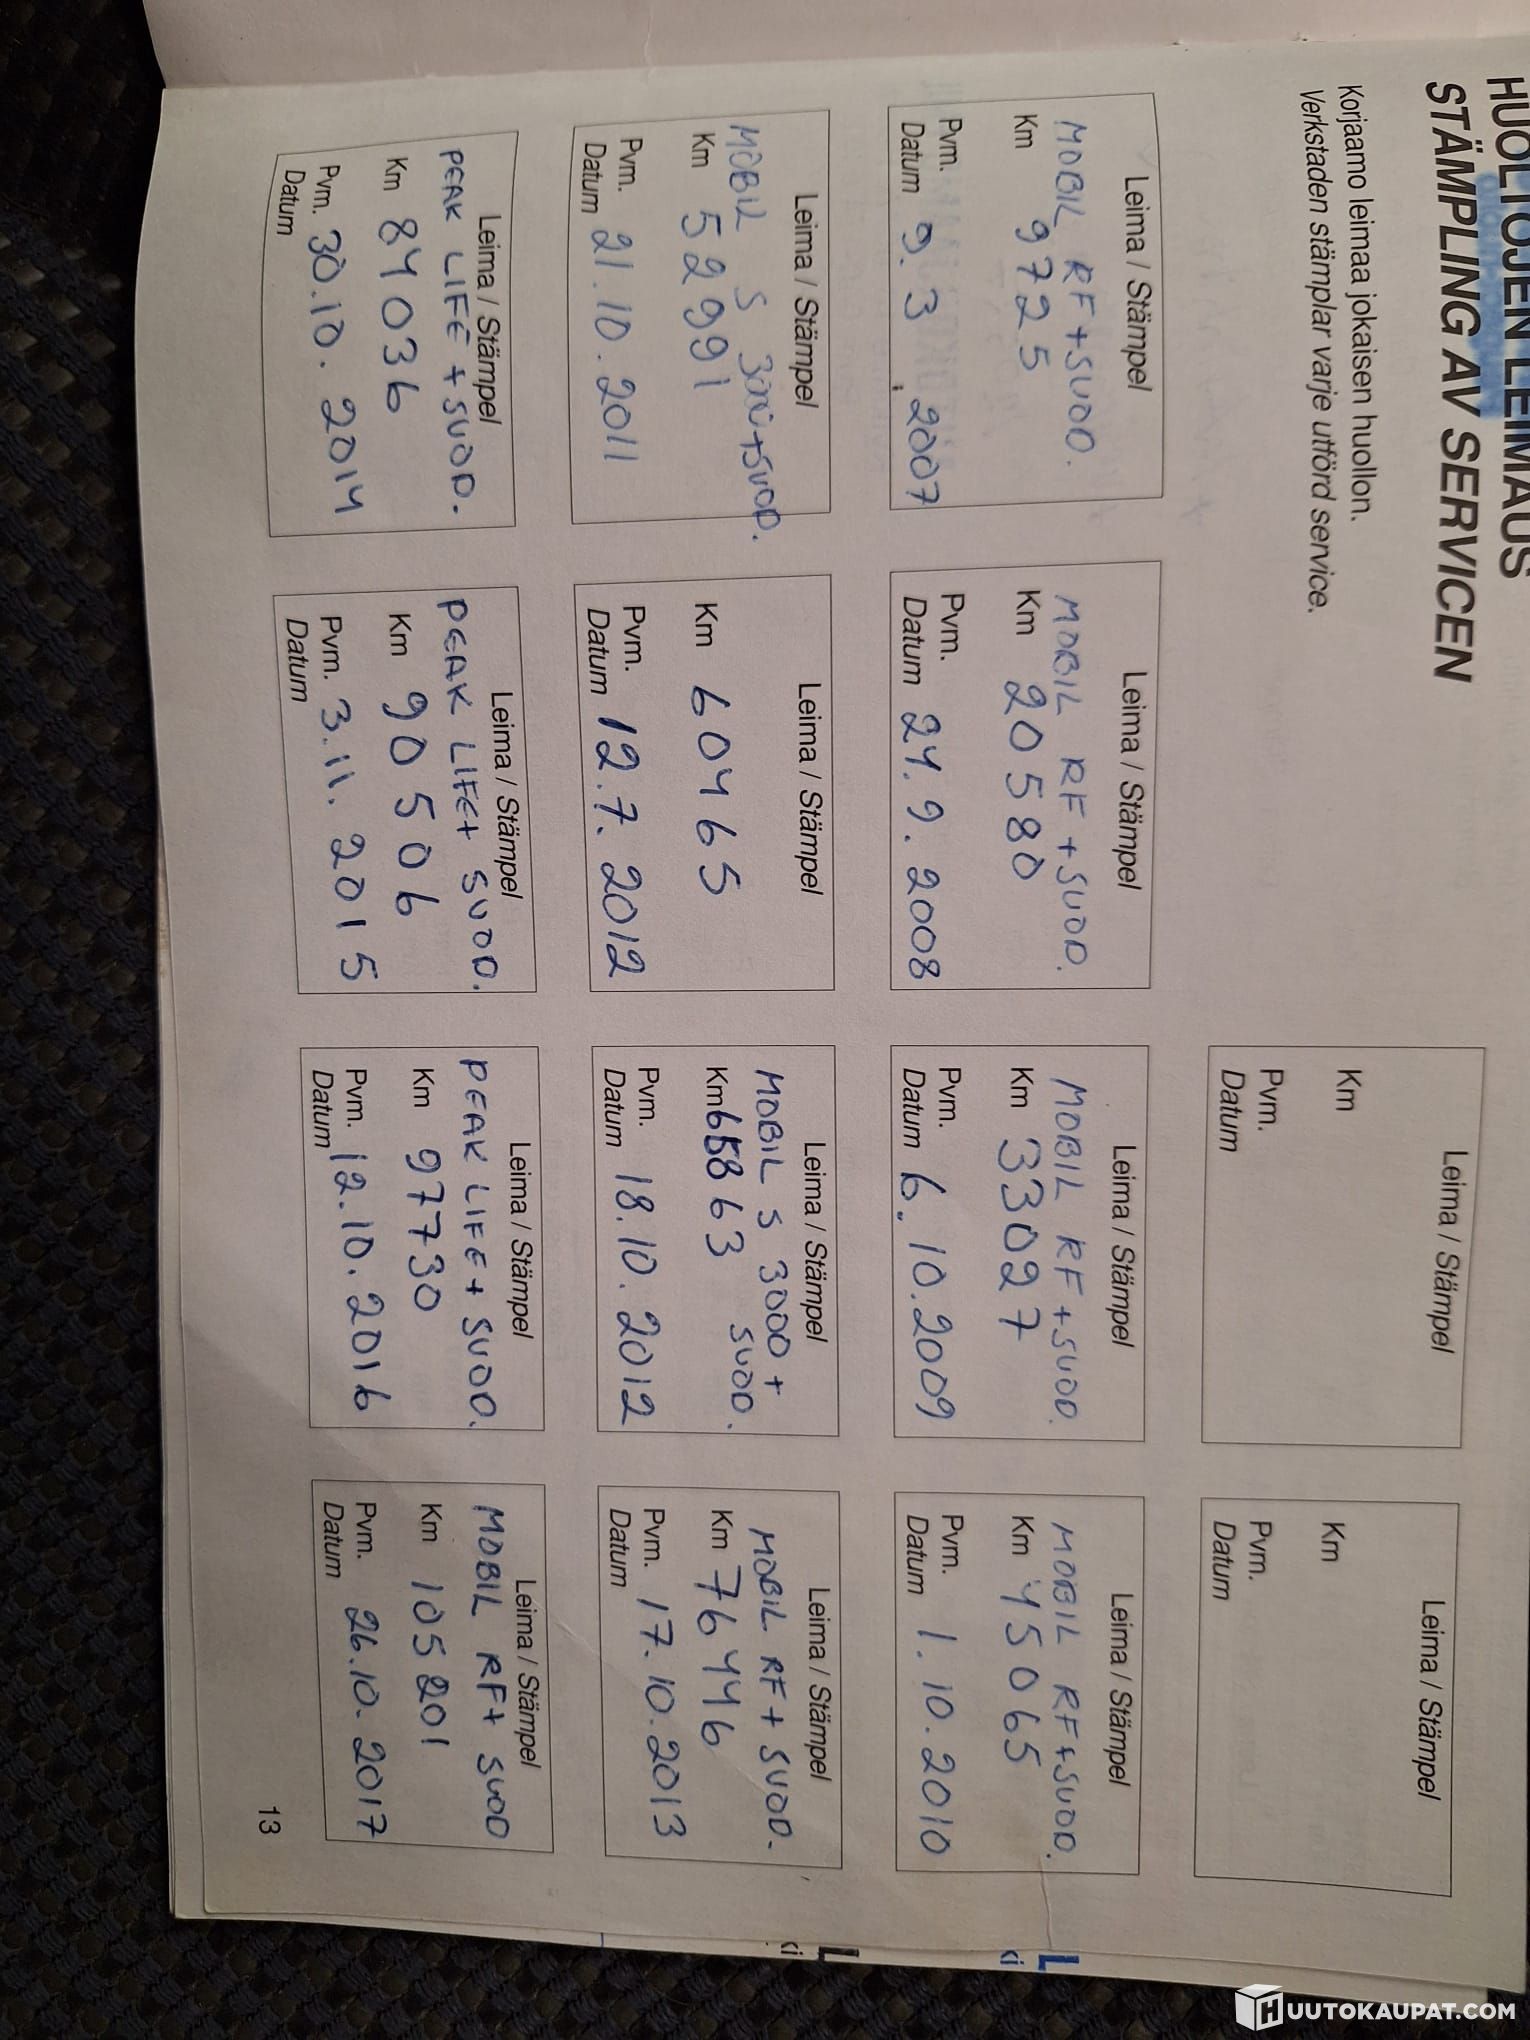 HUOLTOJEN LEIMAUS
STÄMPLING AV SERVICEN
Korjaamo leimaa jokaisen huollon.
Verkstaden stämplar varje utförd service.
Leima / Stämpel
Km
Pvm.
Datum
Leima / Stämpel
Km
Pvm.
Datum
Leima / Stämpel
MOBIL RF+SUOD.
Km 9725
Pvm.
Datum 9.3.2007
Leima / Stämpel
MOBIL RF+SUOD.
Km 20580
Pvm.
Datum 24.9.2008
Leima / Stämpel
MOBIL RF+SUOD.
Km 33027
Pvm.
Datum 6.10.2009
Leima / Stämpel
MOBIL RF+SUOD.
Km 45065
Pvm.
Datum 1.10.2010
Leima / Stämpel
MOBIL S 3000+SUOD.
Km 52991
Pvm.
Datum 21.10.2011
Leima / Stämpel
Km 60465
Pvm.
Datum 12.7.2012
Leima / Stämpel
MOBIL S 3000+
SUOD.
Km 65863
Pvm.
Datum 18.10.2012
Leima / Stämpel
MOBIL RF+SUOD.
Km 76446
Pvm. 17.10.2013
Datum
Leima / Stämpel
PEAK LIFE+SUOD.
Km 84036
Pvm. 30.10.2014
Datum
Leima / Stämpel
PEAK LIFE+SUOD.
Km 90506
Pvm. 3.11.2015
Datum
Leima / Stämpel
PEAK LIFE+SUOD.
Km 97730
Pvm. 12.10.2016
Datum
Leima / Stämpel
MOBIL RF+SUOD
Km 105201
Pvm. 26.10.2017
Datum
13
L
ki
L
ki
HUUTOKAUPAT.COM